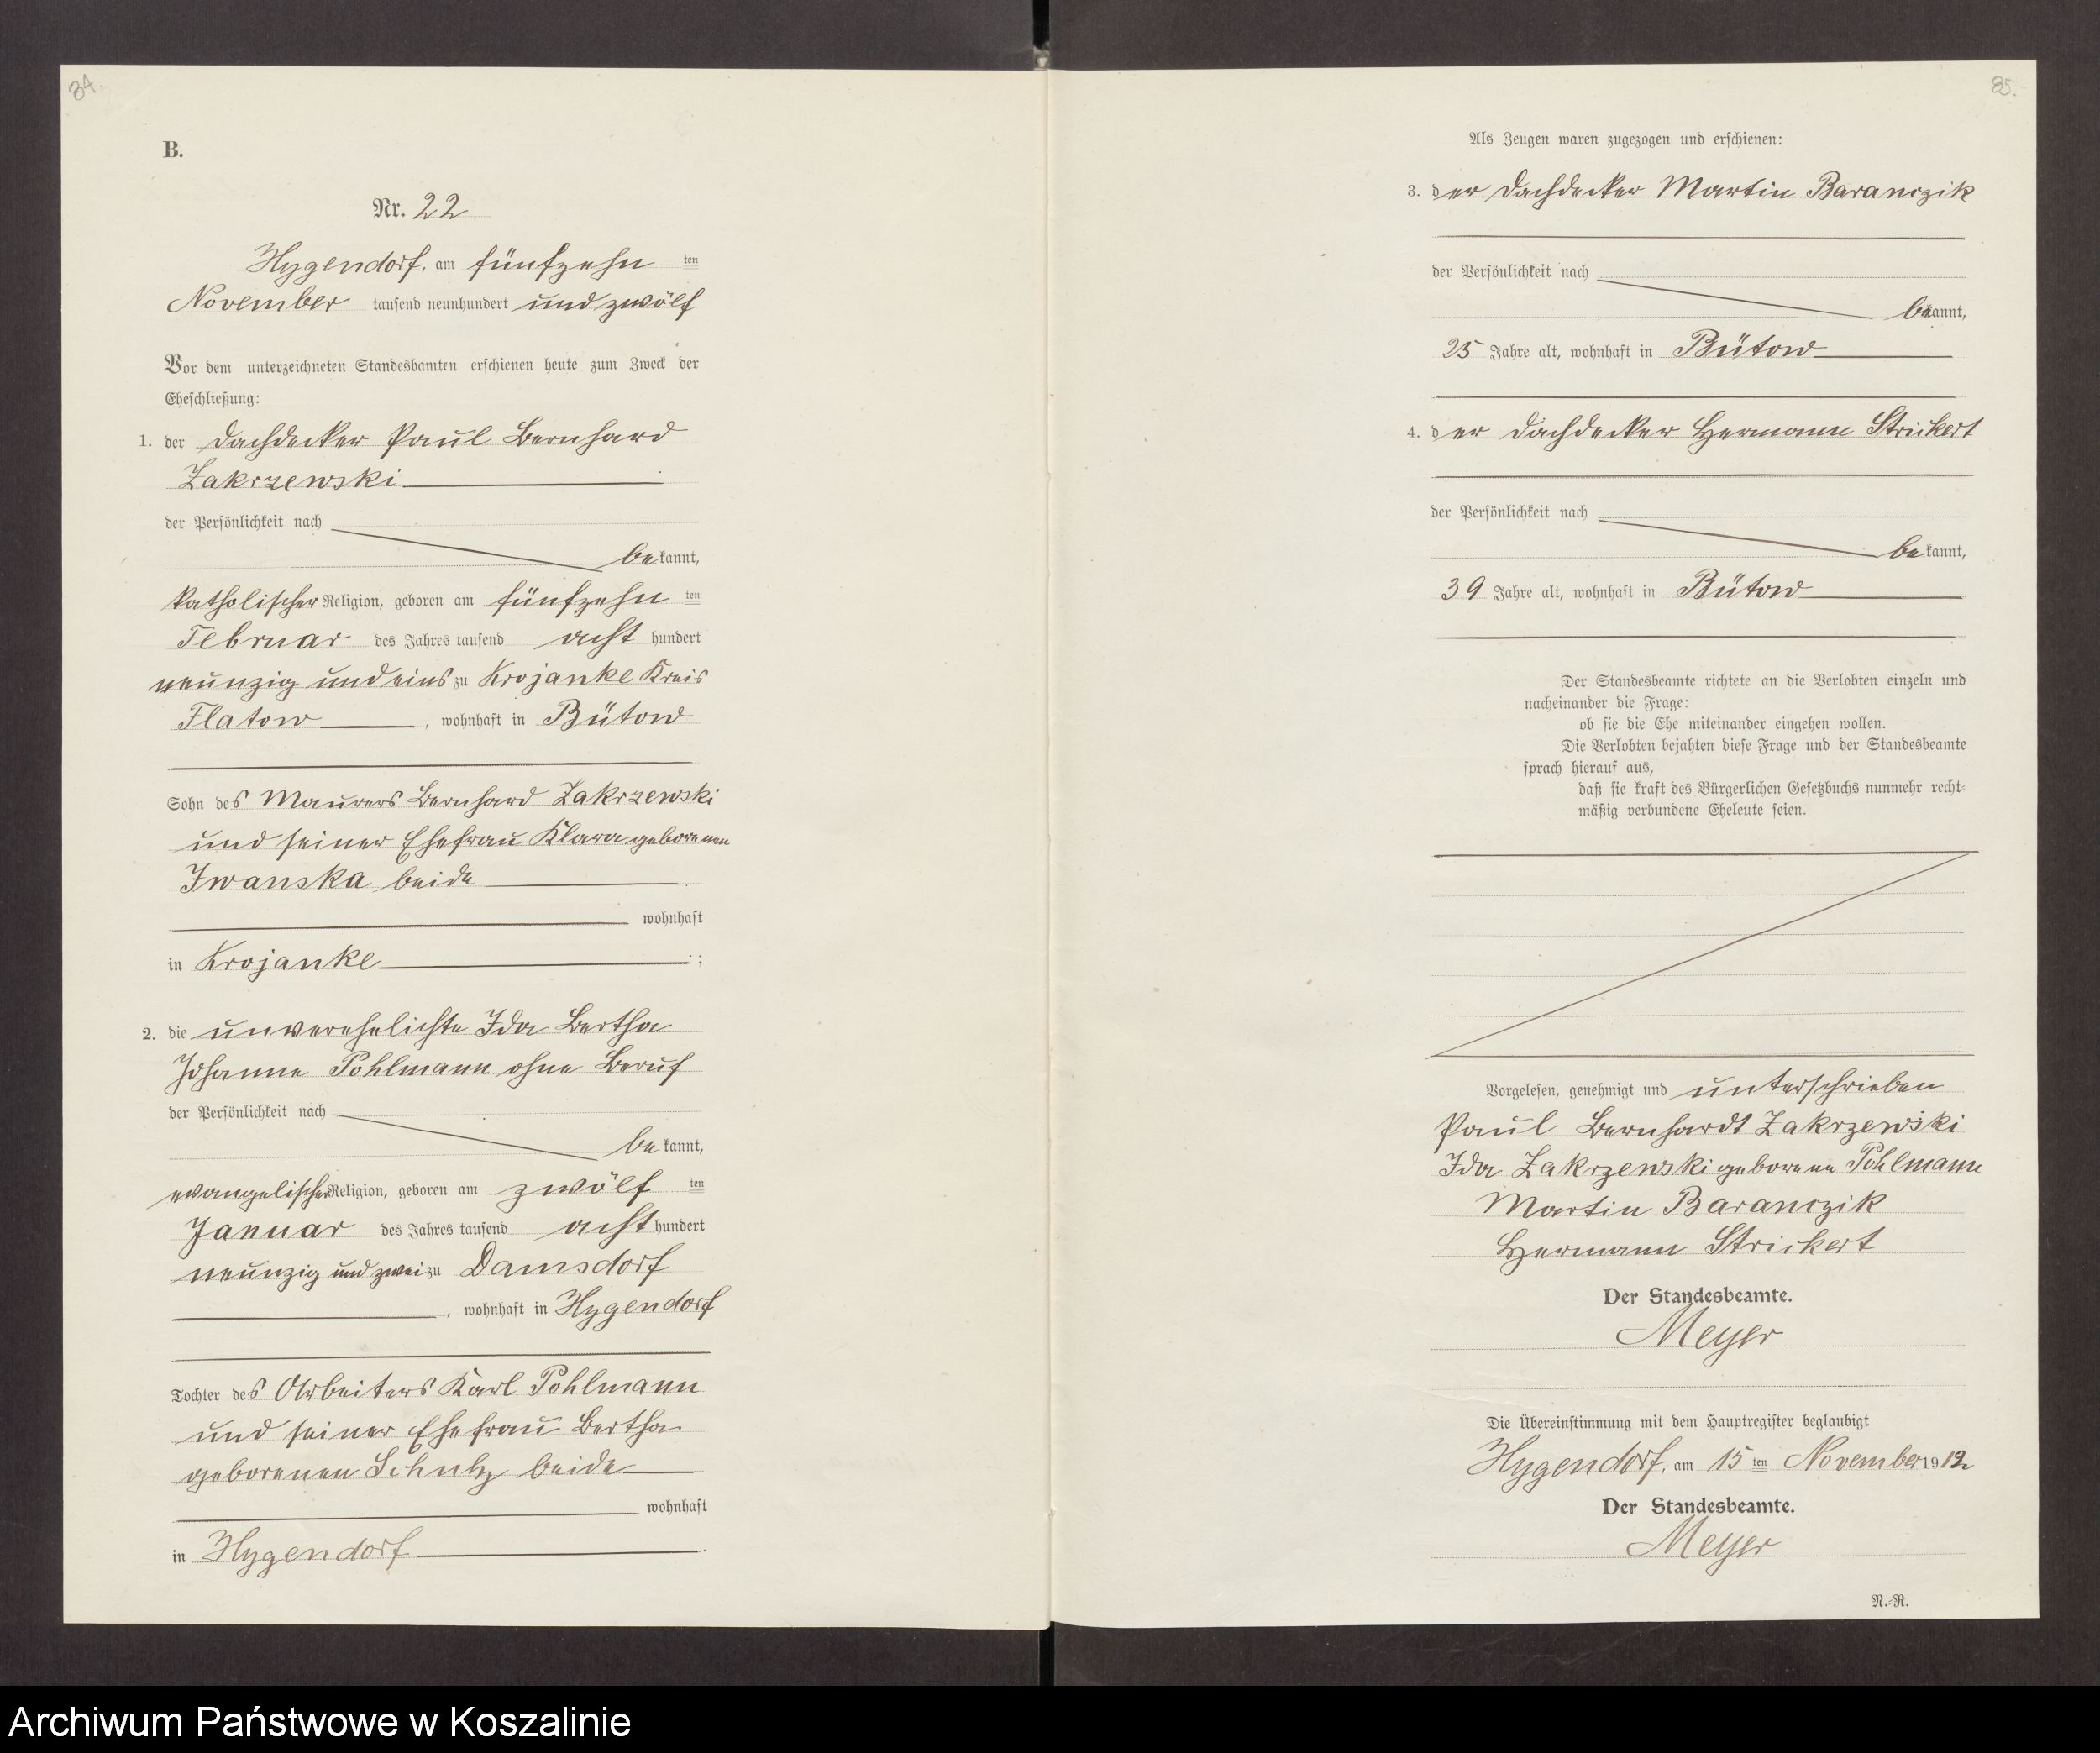 84.
B.
Nr. 22
Hygendorf, am fünfzehn ten
November tausend neunhundert und zwölf
Vor dem unterzeichneten Standesbamten erschienen heute zum Zweck der
Eheschließung:
1. der Dachdecker Paul Bernhard
Zakrzewski
der Persönlichkeit nach
bekannt,
katholischer Religion, geboren am fünfzehn ten
Februar des Jahres tausend acht hundert
neunzig und eins zu Krojanke Kreis
Flatow, wohnhaft in Bütow
Sohn des Maurers Bernhard Zakrzewski
und seiner Ehefrau Klara geborenen
Iwanska beide
wohnhaft
in Krojanke ;
2. die unverehelichte Ida Bertha
Johanne Pohlmann ohne Beruf
der Persönlichkeit nach
bekannt,
evangelischer Religion, geboren am zwölf ten
Januar des Jahres tausend acht hundert
neunzig und zwei zu Damsdorf
, wohnhaft in Hygendorf
Tochter des Arbeiters Karl Pohlmann
und seiner Ehefrau Bertha
geborenen Schulz beide
wohnhaft
in Hygendorf.
85.
Als Zeugen waren zugezogen und erschienen:
3. der Dachdecker Martin Baranczik
der Persönlichkeit nach
bekannt,
25 Jahre alt, wohnhaft in Bütow
4. der Dachdecker Hermann Strickert
der Persönlichkeit nach
bekannt,
39 Jahre alt, wohnhaft in Bütow
Der Standesbeamte richtete an die Verlobten einzeln und
nacheinander die Frage:
ob sie die Ehe miteinander eingehen wollen.
Die Verlobten bejahten diese Frage und der Standesbeamte
sprach hierauf aus,
daß sie kraft des Bürgerlichen Gesetzbuchs nunmehr recht-
mäßig verbundene Eheleute seien.
Vorgelesen, genehmigt und unterschrieben
Paul Bernhardt Zakrzewski
Ida Zakrzewski geborene Pohlmann
Martin Baranczik
Hermann Strickert
Der Standesbeamte.
Meyer
Die Übereinstimmung mit dem Hauptregister beglaubigt
Hygendorf, am 15 ten November 1912
Der Standesbeamte.
Meyer
N.-R.
Archiwum Państwowe w Koszalinie